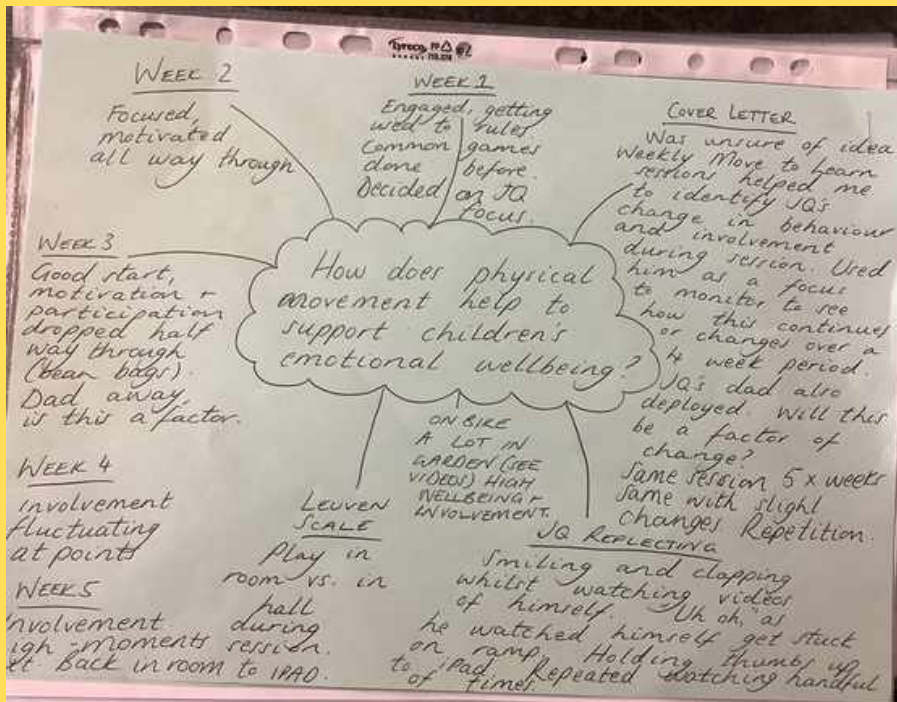 Tyreco PP
WEEK 2
Focused,
motivated
all way through
WEEK 1
Engaged, getting
used to rules
Common games
done before.
Decided on JQ
focus.
COVER LETTER
Was unsure of idea
Weekly Move to Learn
sessions helped me
to identify JQ's
change in behaviour
and involvement
during session. Used
him as a focus
to monitor, to see
how this continues
or changes over a
4 week period.
JQ's dad also
deployed. Will this
be a factor of
change?
Same session 5 x weeks
same with slight
changes Repetition.
How does physical
movement help to
support children's
emotional wellbeing?
WEEK 3
Good start,
motivation +
participation
dropped half
way through
(bean bags).
Dad away,
is this a factor.
WEEK 4
involvement
fluctuating
at points
WEEK 5
nvolvement
igh - moments
Back in room to IPAD.
LEUVEN
SCALE
Play in
room vs. in
hall
during
session.
ON BIKE
A LOT IN
GARDEN (SEE
VIDEOS) HIGH
WELLBEING +
INVOLVEMENT.
JQ REFLECTING
Smiling and clapping
whilst watching videos
of himself. "Uh oh," as
he watched himself get stuck
on ramp. Holding thumbs up
to iPad. Repeated watching handful
of times.